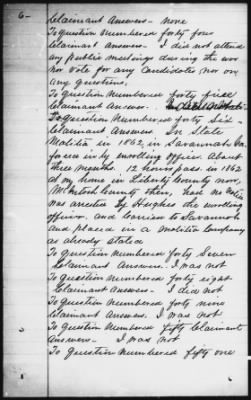 6-
Claimant Answers - none
To question numbered forty four
Claimant Answers - I did not attend
any public meetings during the war
nor vote for any Candidates nor on
any questions,
To question Numbered forty five
Claimant Answers.
To question Numbered forty Six -
Claimant Answers In State
Malitia in 1862, in Savannah Ga
forced in by enrolling Officer. About
three months. 12 hours pass in 1862
at my home in Liberty County now,
McIntosh County then, had no
was arrested by Hughes the enrolling
officer. and carried to Savannah
and placed in a Malitia Company
as already stated
To question numbered forty Seven
Claimant Answers. I was not
To question numbered forty eight
Claimant Answers - I did not
To question numbered forty nine
Claimant answers. I was not
To question Numbered fifty Claimant
Answers - I was not
To question numbered fifty one